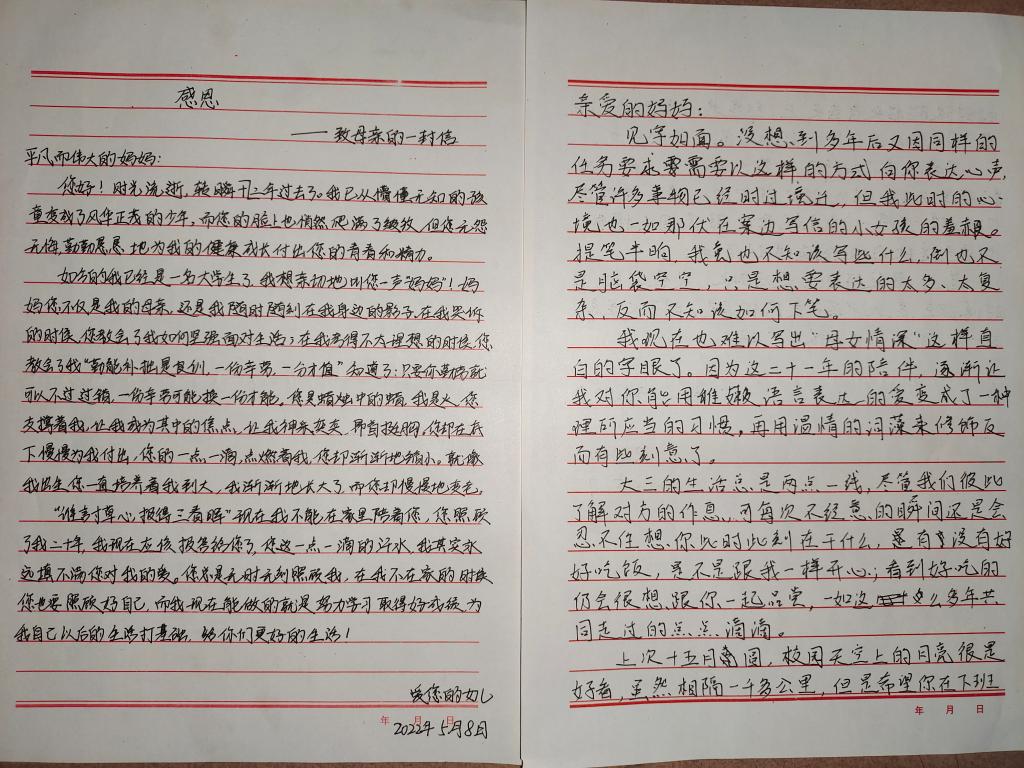 感恩
——致母亲的一封信
平凡而伟大的妈妈:
您好!时光流逝,转瞬二年过去了。我已从懵懂无知的孩
童变成了风华正茂的少年,而您的脸上也悄然爬满了皱纹,但您无怨
无悔,勤勤恳恳地为我的健康成长付出您的青春和精力。
如今的我已经是一名大学生了,我想亲切地叫您一声“妈妈”!妈
妈您不仅是我的母亲,还是我随时随刻在我身边的影子,在我哭诉
的时候,您教会了我如何坚强面对生活;在我考得不太理想的时候,您
教会了我“勤能补拙是良训,一份辛劳,一分才值”知道了:只要你勤劳就
可以不过过错,一份辛劳可能换一份才能,您是蜡烛中的蜡,我是火,您
支撑着我,让我成为其中的焦点,让我神采奕奕,昂首挺胸,您却在底
下慢慢为我付出,您的一点一滴,点燃着我,您却渐渐地缩小。就像
我出生您一直培养着我到大,我渐渐地长大了,而您却慢慢地变老。
“谁言寸草心,报得三春晖”现在我不能在家里陪着您,您照顾
了我二十年,我现在应该报答给您了,您这一点一滴的汗水,我其实永
远填不满您对我的爱。您总是无时无刻照顾我,在我不在家的时候
您也要照顾好自己,而我现在能做的就是努力学习取得好成绩,为
我自己以后的生活打基础,给你们更好的生活!
爱您的女儿
年 月 日
2022年5月8日
亲爱的妈妈:
见字如面。没想到多年后又因同样的
任务要求需要以这样的方式向你表达心声,
尽管许多事物已经时过境迁,但我此时的心
境也一如那伏在案边写信的小女孩的羞赧。
提笔半晌,我竟也不知该写些什么,倒也不
是脑袋空空,只是想要表达的太多、太复
杂,反而不知该如何下笔。
我现在也难以写出“母女情深”这样直
白的字眼了。因为这二十一年的陪伴,逐渐让
我对你能用稚嫩语言表达的爱变成了一种
理所应当的习惯,再用温情的词藻来修饰反
而有些刻意了。
大三的生活总是两点一线,尽管我们彼此
了解对方的作息,可每次不经意的瞬间还是会
忍不住想你此时此刻在干什么,是有没有好
好吃饭,是不是跟我一样开心;看到好吃的
仍会很想跟你一起品尝,一如这么多年共
同走过的点点滴滴。
上次十五月圆,校园天空上的月亮很是
好看,虽然相隔一千多公里,但是希望你在下班
年 月 日